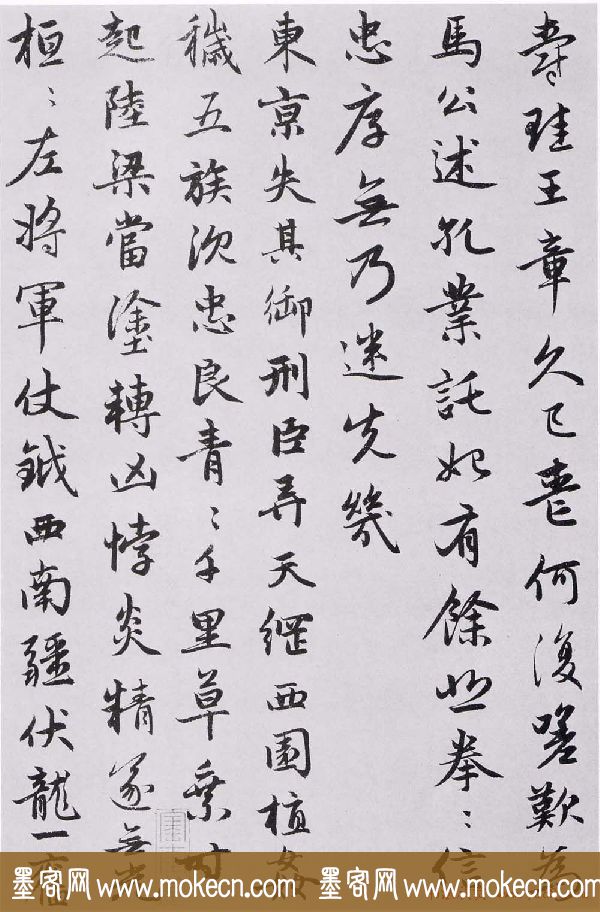 爵珪王章久已喪何復嗟歎為
馬公述孔業託始有餘悲拳〻信
忠厚無乃迷先幾
東亰失其御刑臣弄天綱西園植姦
穢五族沉忠良青〻千里草乘時
起陸梁當塗轉凶悖炎精遂無光
桓〻左將軍仗鉞西南疆伏龍一奮
墨客网 www.mokecn.com 墨客网 www.mokecn.com